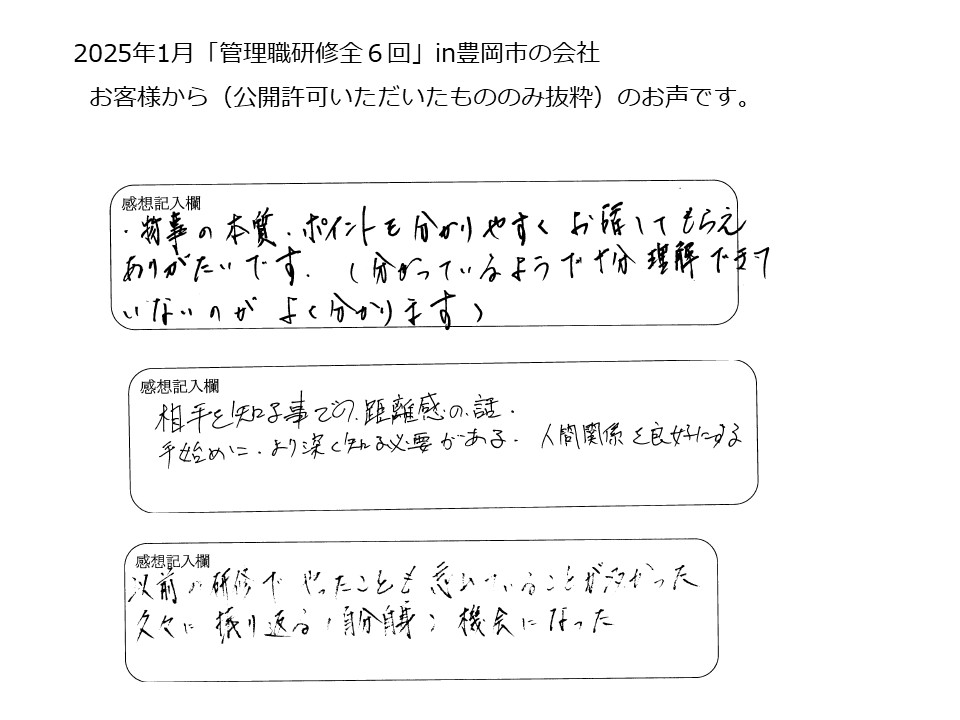 2025年1月「管理職研修全６回」in豊岡市の会社
お客様から（公開許可いただいたもののみ抜粋）のお声です。
感想記入欄
・物事の本質・ポイントを分かりやすくお話してもらえ
ありがたいです。（分かっているようで十分理解できて
いないのがよく分かります）
感想記入欄
相手を知る事での、距離感の話。
手始めに、より深く知る必要がある。人間関係を良好にする
感想記入欄
以前の研修でやったことも忘れていることが多かった
久々に振り返る（自分自身）機会になった